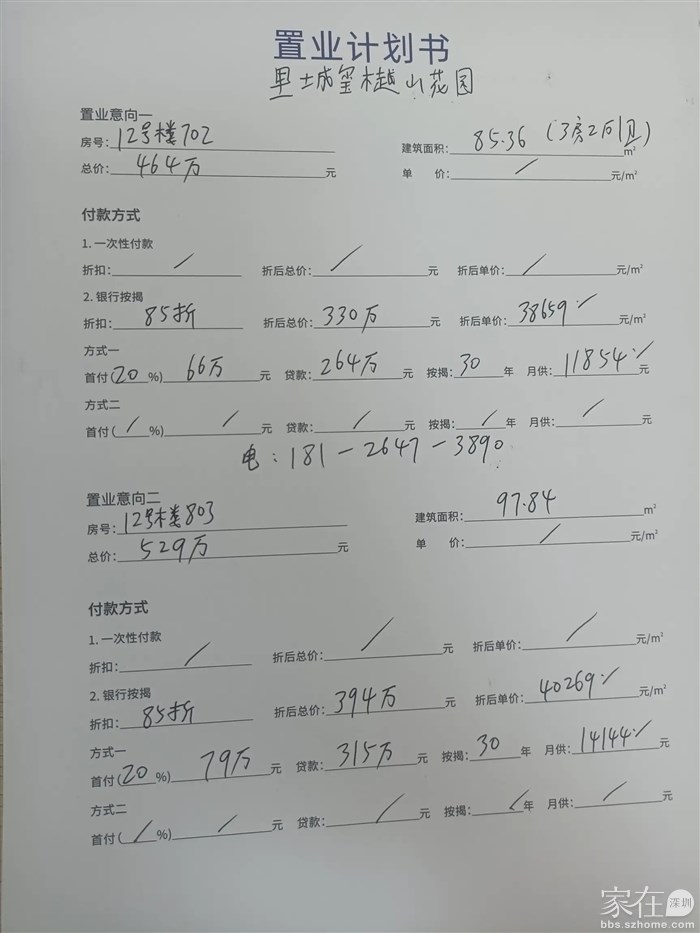 置业计划书
里城玺樾山花园
置业意向一
房号: 12号楼702 建筑面积: 85.36 (3房2厅1卫) m²
总价: 464万 元 单 价: / 元/m²
付款方式
1. 一次性付款
折扣: / 折后总价: / 元 折后单价: / 元/m²
2. 银行按揭
折扣: 85折 折后总价: 330万 元 折后单价: 38659 元/m²
方式一
首付(20 %) 66万 元 贷款: 264万 元 按揭: 30 年 月供: 11854 元
方式二
首付( / %) / 元 贷款: / 元 按揭: / 年 月供: / 元
电: 181-2647-3890
置业意向二
房号: 12号楼803 建筑面积: 97.84 m²
总价: 529万 元 单 价: / 元/m²
付款方式
1. 一次性付款
折扣: / 折后总价: / 元 折后单价: / 元/m²
2. 银行按揭
折扣: 85折 折后总价: 394万 元 折后单价: 40269 元/m²
方式一
首付(20 %) 79万 元 贷款: 315万 元 按揭: 30 年 月供: 14144 元
方式二
首付( / %) / 元 贷款: / 元 按揭: / 年 月供: / 元
家在深圳
bbs.szhome.com